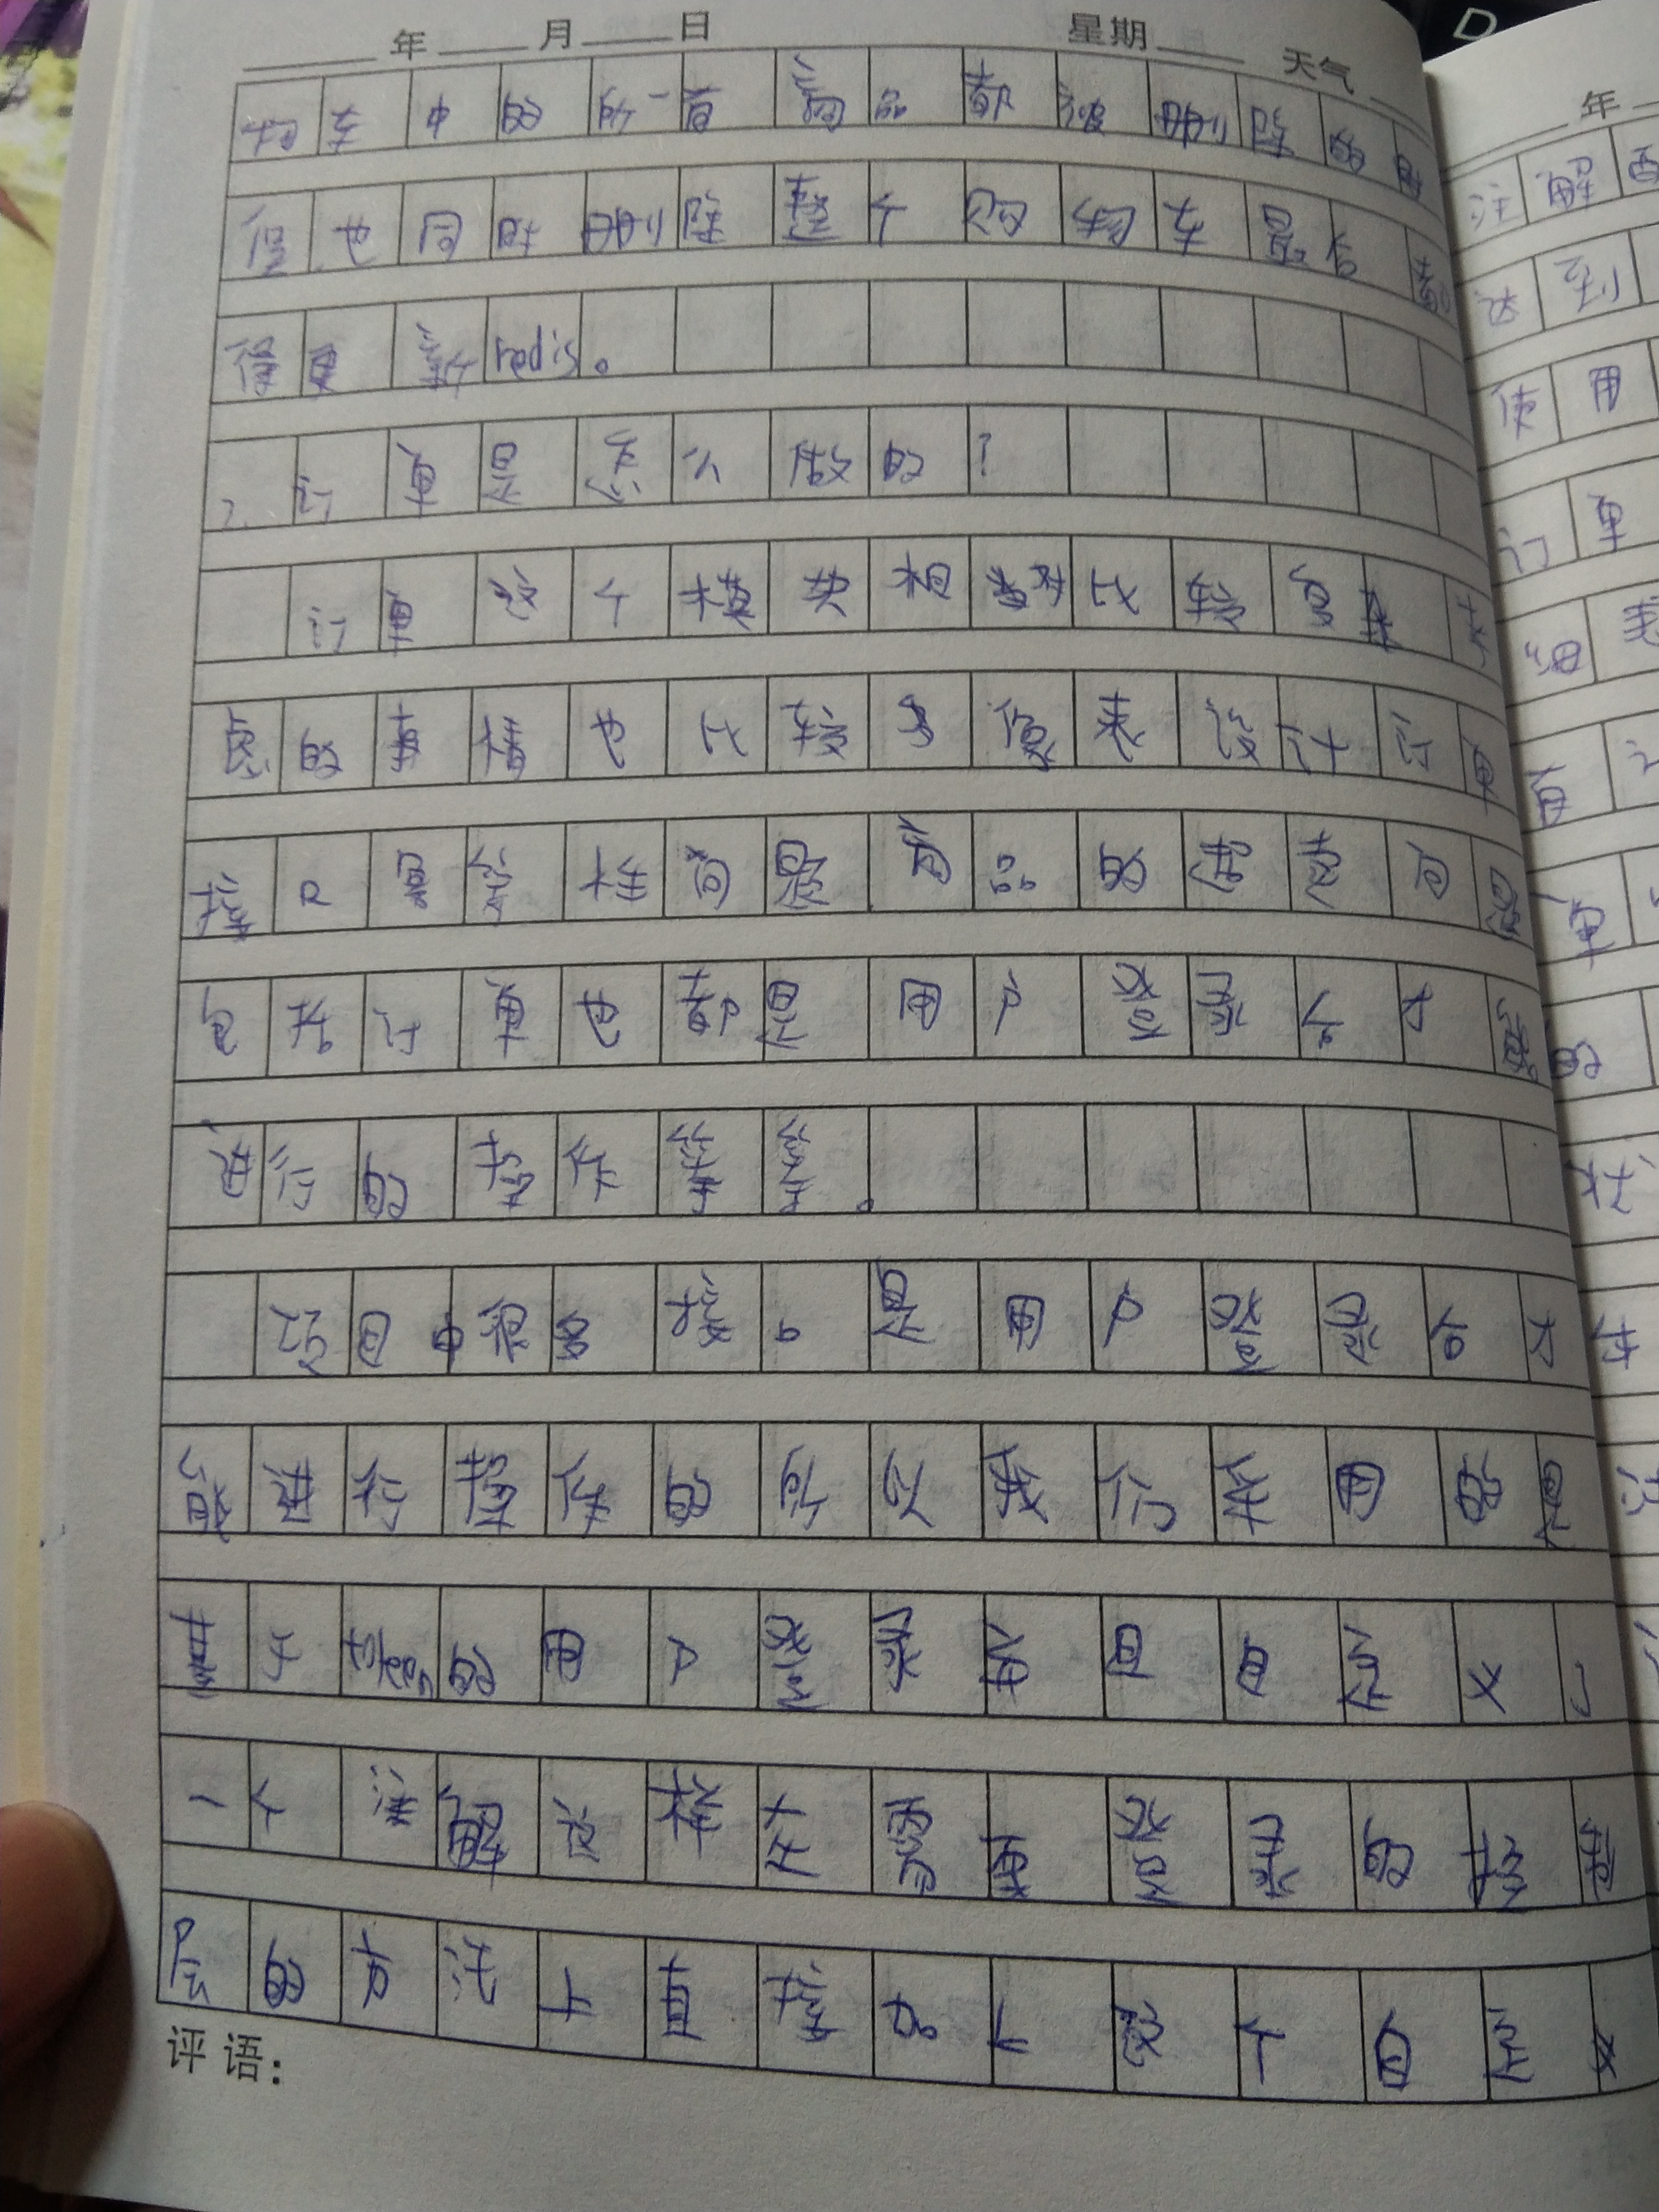 年 月 日 星期 天气
物车中的所有商品都被删除的时
候也同时删除整个购物车最后都
得更新redis。
2.订单是怎么做的?
订单这个模块相对比较复杂考
虑的事情也比较多像表设计订单
接口幂等性问题商品的快照问题
包括订单也都是用户登录后才能
进行的操作等等。
项目中很多接口是用户登录后才
能进行操作的所以我们采用的是
基于 的用户登录前且自定义了
一个注解这样在需要登录的控制
层的方法上直接加上这个自定义
评语:
年
注解
达到
使用
订单
细表
有
单
的